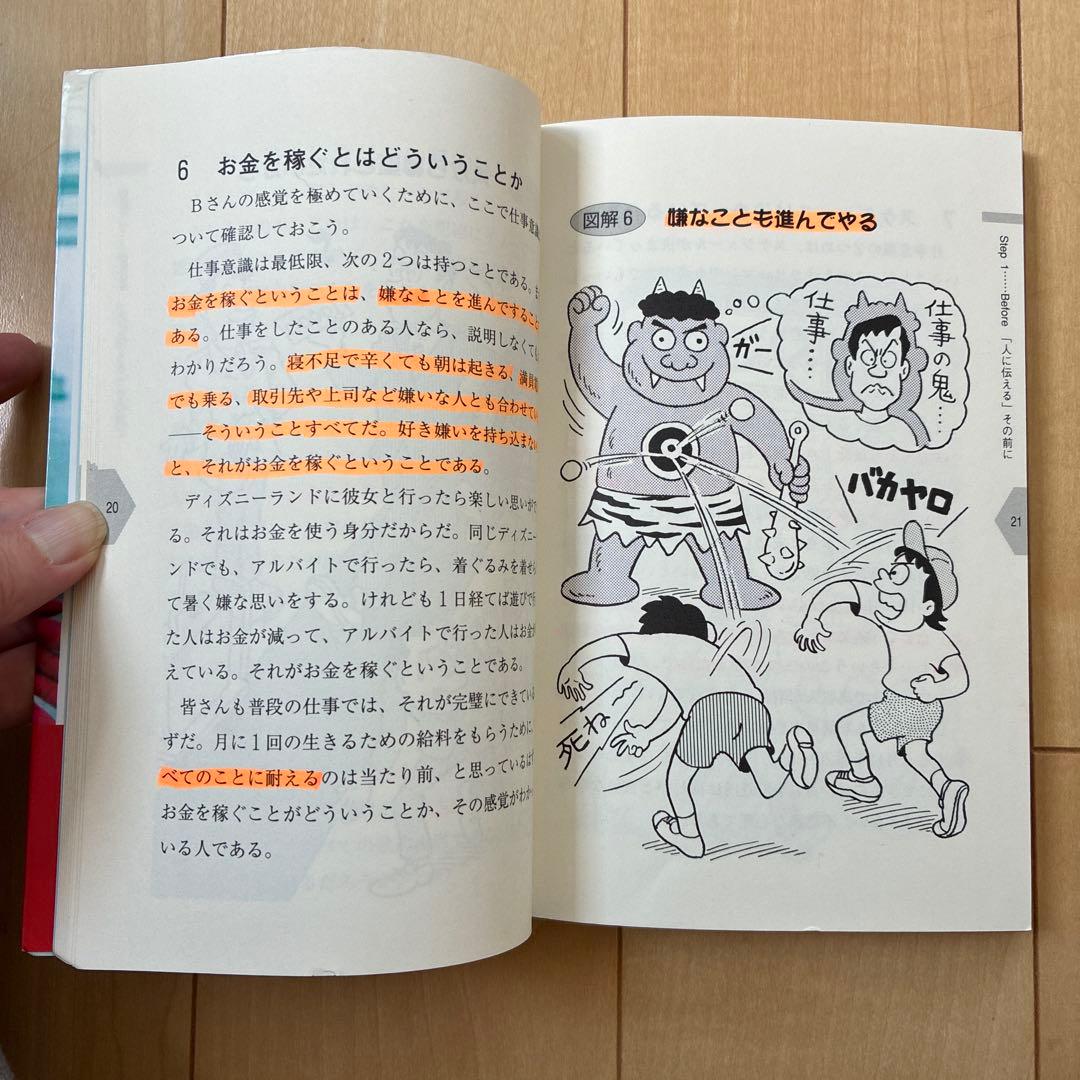 6 お金を稼ぐとはどういうことか
Bさんの感覚を極めていくために、ここで仕事意識
ついて確認しておこう。
仕事意識は最低限、次の2つは持つことである。ま
お金を稼ぐということは、嫌なことを進んですること
ある。仕事をしたことのある人なら、説明しなくても
わかりだろう。寝不足で辛くても朝は起きる、満員電
でも乗る、取引先や上司など嫌いな人とも合わせてい
――そういうことすべてだ。好き嫌いを持ち込まない
と、それがお金を稼ぐということである。
ディズニーランドに彼女と行ったら楽しい思いがで
る。それはお金を使う身分だからだ。同じディズニー
ンドでも、アルバイトで行ったら、着ぐるみを着せら
て暑く嫌な思いをする。けれども1日経てば遊びで行
た人はお金が減って、アルバイトで行った人はお金が
えている。それがお金を稼ぐということである。
皆さんも普段の仕事では、それが完璧にできている
ずだ。月に1回の生きるための給料をもらうために、
べてのことに耐えるのは当たり前、と思っているはず
お金を稼ぐことがどういうことか、その感覚がわか
いる人である。
20
図解6 嫌なことも進んでやる
仕事の鬼…
仕事…
ガー
バカヤロ
死ね
Step 1……Before 「人に伝える」その前に
21